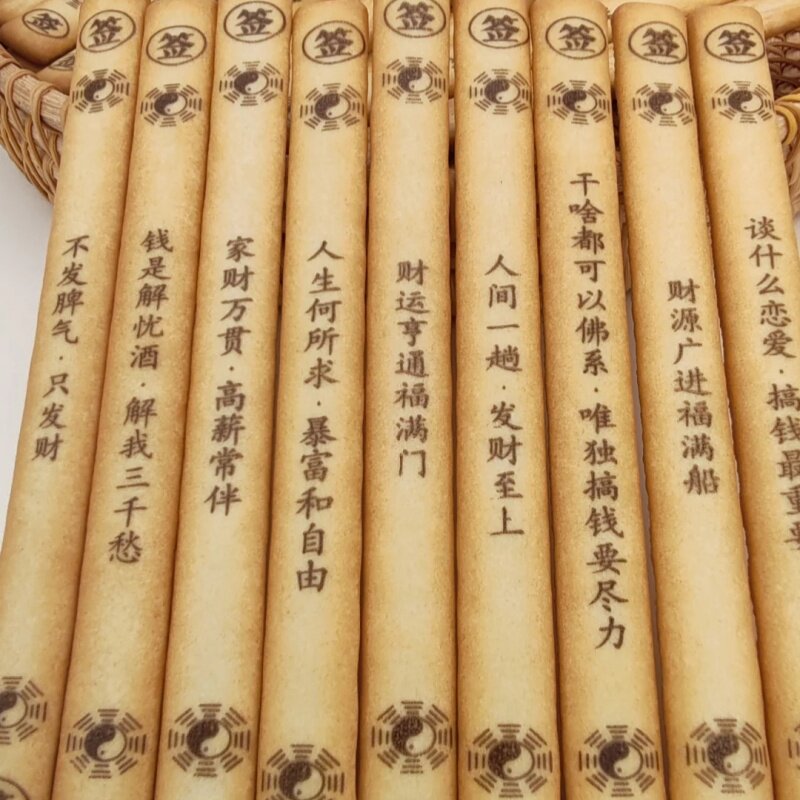 签
不发脾气·只发财
签
钱是解忧酒·解我三千愁
签
家财万贯·高薪常伴
签
人生何所求·暴富和自由
签
财运亨通福满门
签
人间一趟·发财至上
签
干啥都可以佛系·唯独搞钱要尽力
签
财源广进福满船
签
谈什么恋爱·搞钱最重要